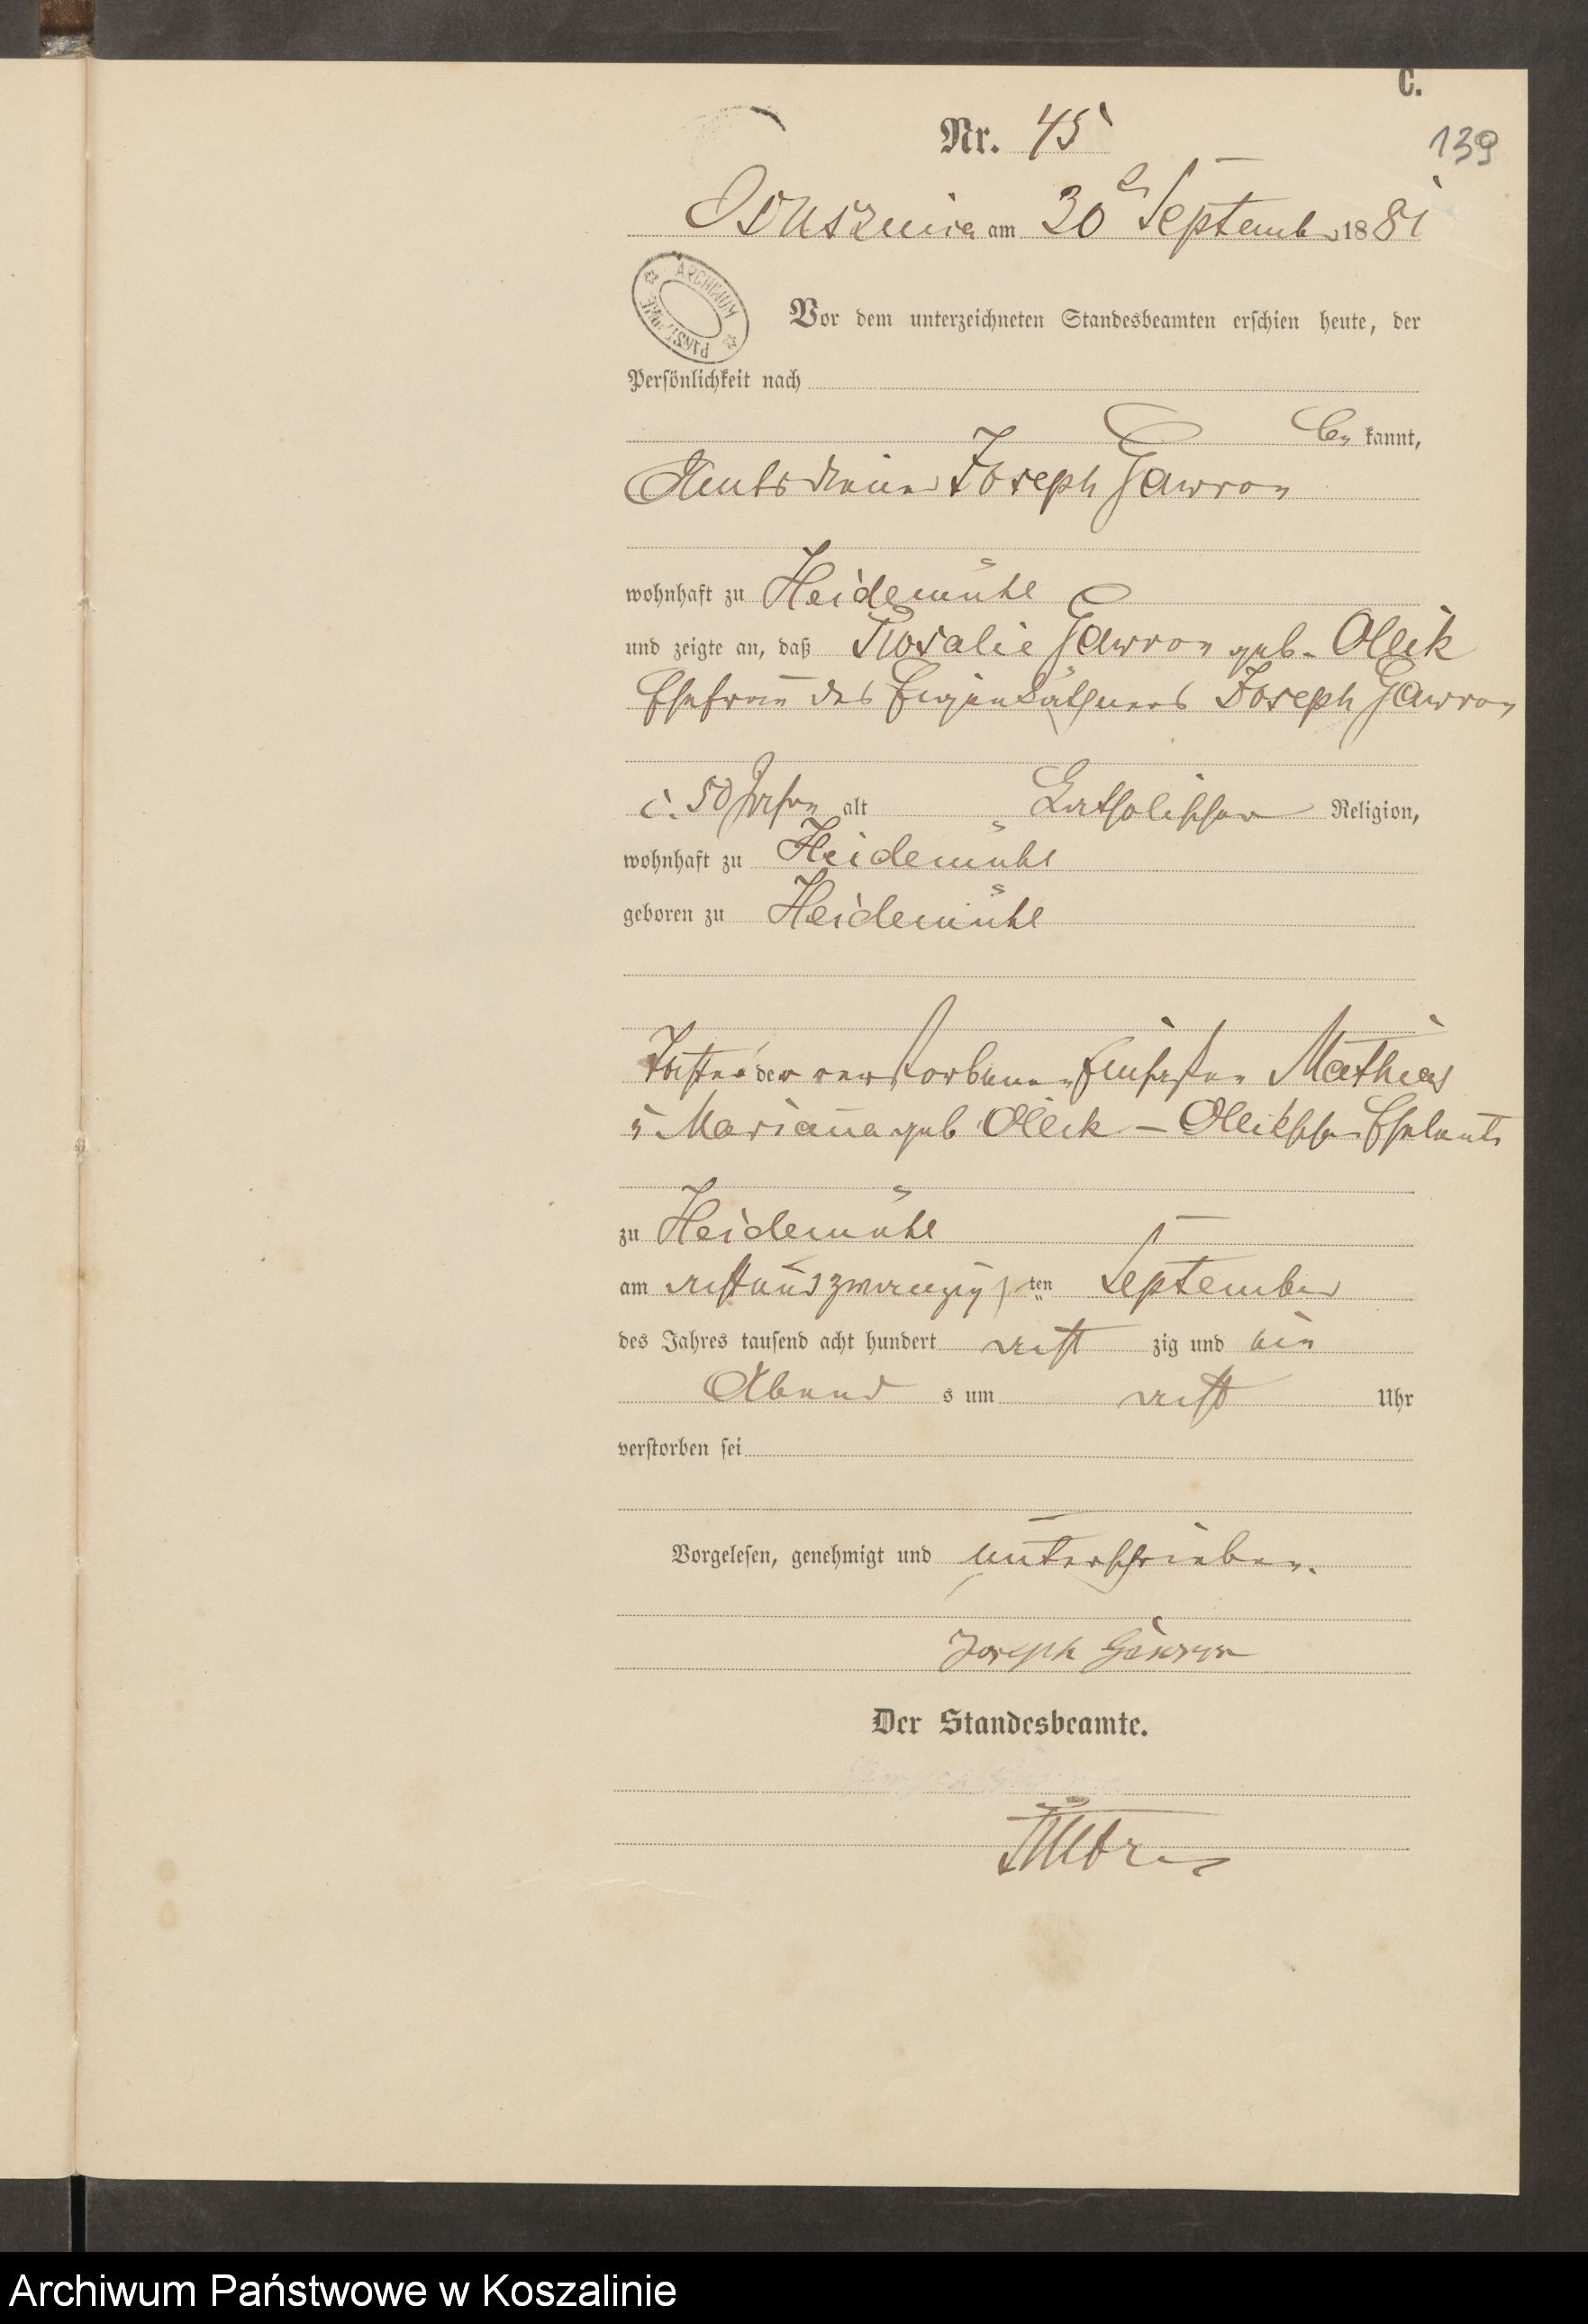 C.
Nr. 45
139
Ossusznica am 30 September 1881
ARCHIWUM
Vor dem unterzeichneten Standesbeamten erschien heute, der
Persönlichkeit nach
be kannt,
Amtsdiener Joseph Gawron
wohnhaft zu Heidemühl
und zeigte an, daß Rosalie Gawron geb. Oleik
Ehefrau des Eigenkäthners Joseph Gawron
c. 50 Jahre alt Katholischer Religion,
wohnhaft zu Heidemühl
geboren zu Heidemühl
Tochter der verstorbenen Einsassen Mathias
u Marianna geb Oleik – Oleikschen Eheleute
zu Heidemühl
am achtundzwanzigsten September
des Jahres tausend acht hundert acht zig und ein
Abend s um acht Uhr
verstorben sei
Vorgelesen, genehmigt und unterschrieben.
Joseph Gawron
Der Standesbeamte.
Archiwum Państwowe w Koszalinie